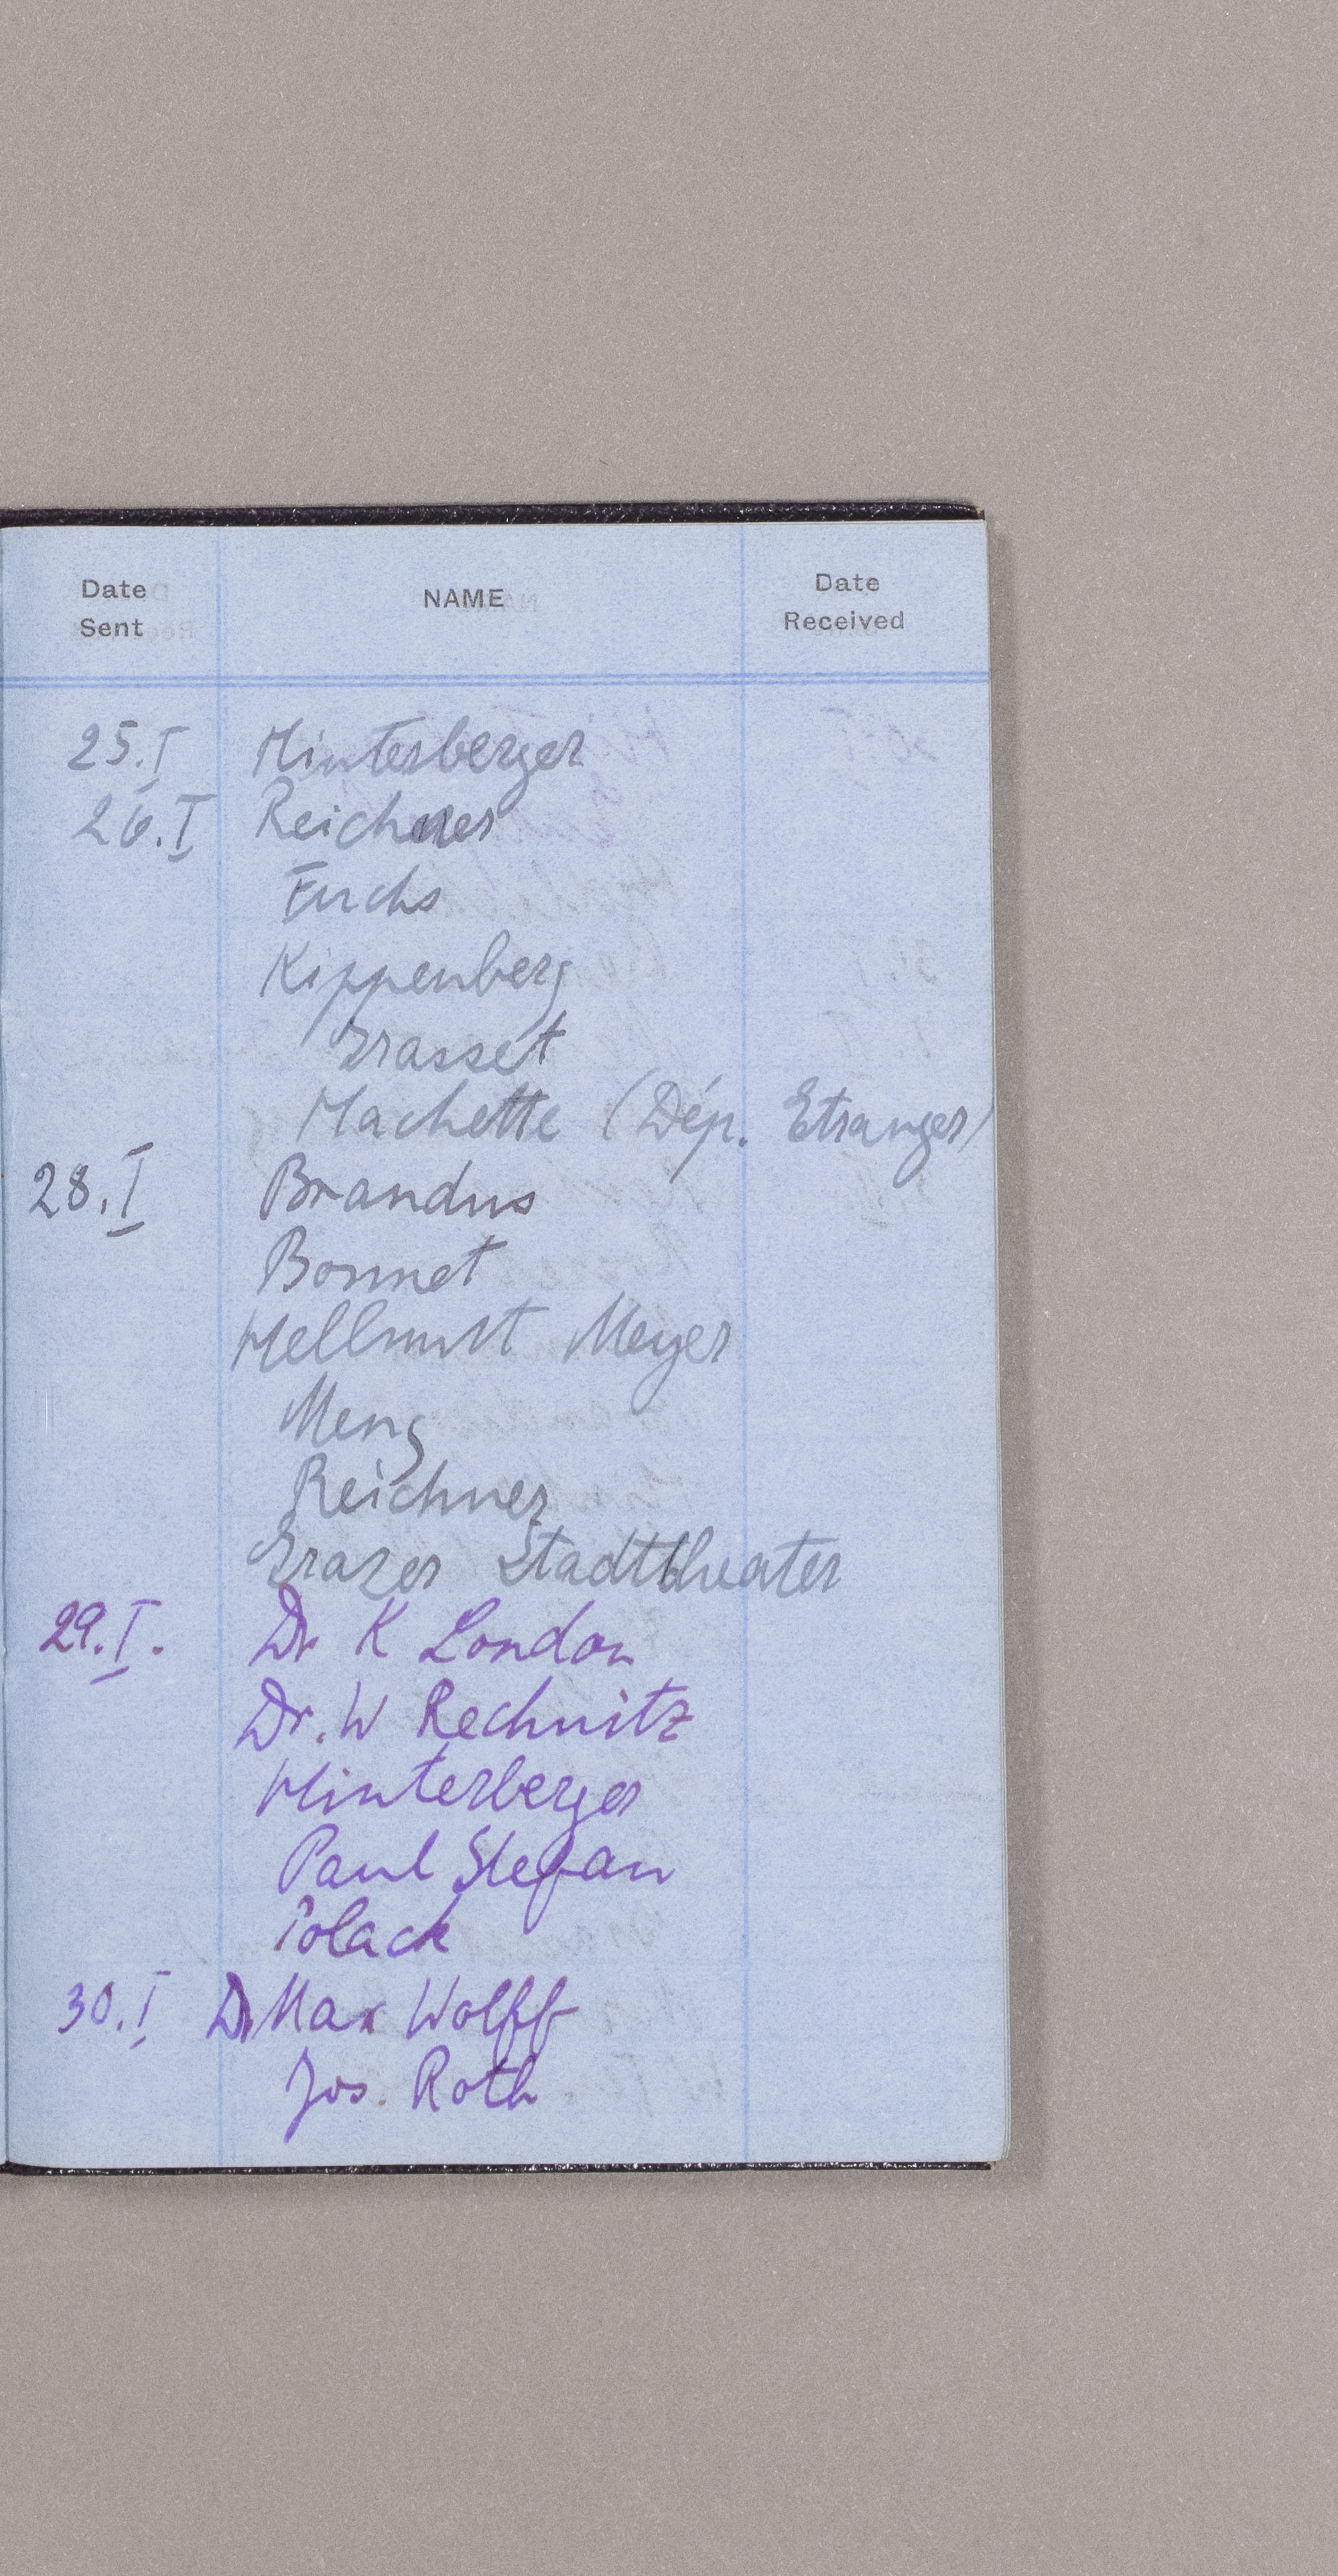 Date Sent NAME Date Received
25.I Hinterberger
26.I Reichner
Fuchs
Kippenberg
Grasset
Hachette (Dép. Etranger)
28.I Brandus
Bonnet
Hellmutt Meyer
Meng
Reichner
Grazer Stadttheater
29.I. Dr K London
Dr. W Rechnitz
Hinterberger
Paul Stefan
Polack
30.I Dr Max Wolff
Jos. Roth